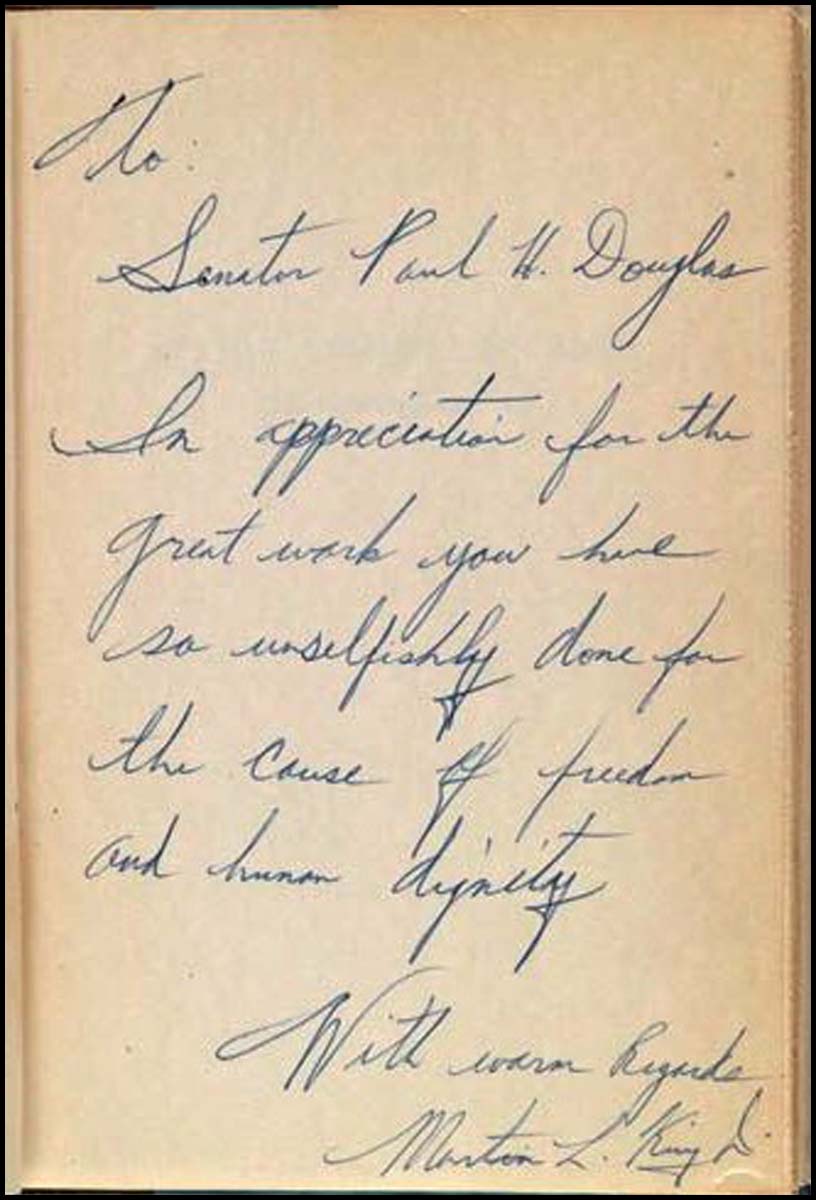 To:
Senator Paul H. Douglas
In appreciation for the
great work you have
so unselfishly done for
the cause of freedom
and human dignity
With warm Regards
Martin L. King Jr.